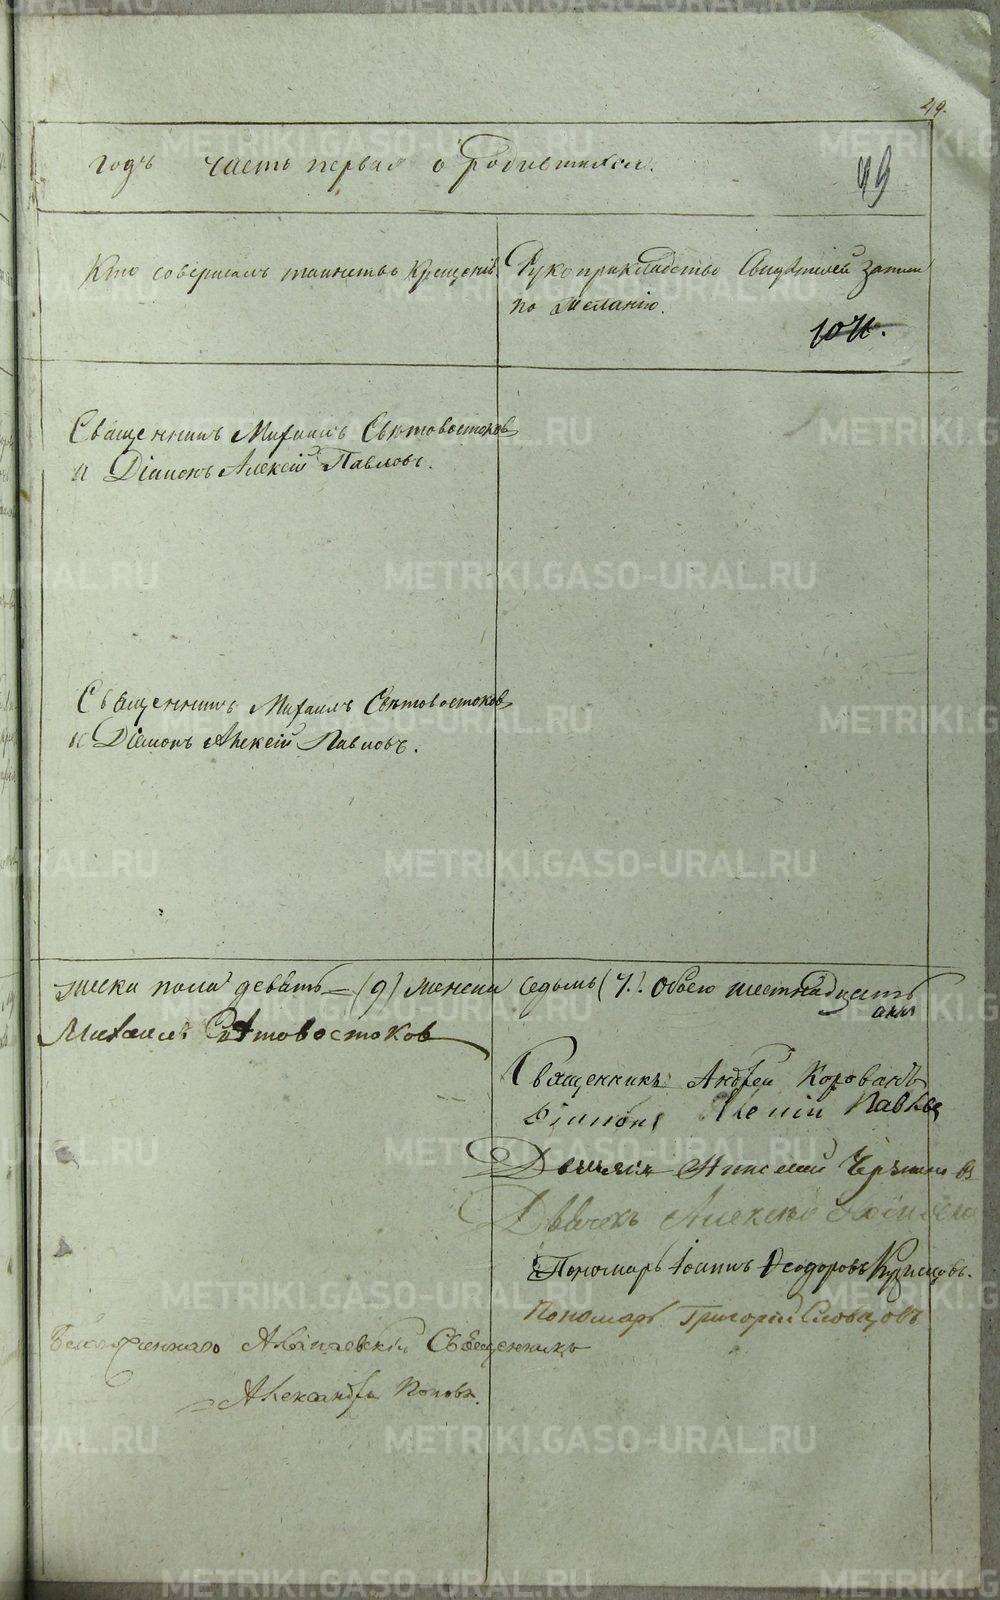 49.
годъ часть первая о родившихся.
49
Кто совершалъ таинство Крещенія
Рукоприкладство Свидѣтелей записи
по желанію.
Священникъ Михаилъ Свѣтовостоковъ
и Діаконъ Алексій Павловъ.
Священникъ Михаилъ Свѣтовостоковъ
и Діаконъ Алексій Павловъ.
жеска пола девять (9) женска седьмь (7.). Обоего шестнадцать
Михаилъ Свѣтовостоков
Священникъ Андрей Корован
Діаконъ Алексій Павлов
Дьячекъ
Дьячекъ Алексѣй
Пономарь Іоаннъ Ѳеодоровъ Кузнецовъ.
Пономарь Григорій Словцовъ
Алапаевскій Священникъ
Александръ Поповъ.
METRIKI.GASO-URAL.RU